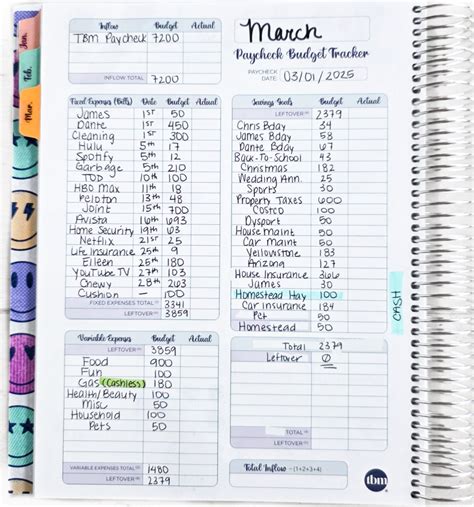 Jan.
Feb.
Mar.
Inflow Budget Actual
TBM Paycheck 7200
INFLOW TOTAL 7200
March
Paycheck Budget Tracker
PAYCHECK DATE: 03/01/2025
Fixed Expenses (Bills) Date Budget Actual
James 1st 50
Dante 1st 450
Cleaning 1st 300
Hulu 5th 17
Spotify 5th 12
Garbage 5th 210
TDP 10th 100
HBO Max 11th 18
Peloton 13th 48
Joint 15th 700
Avista 16th 693
Home Security 19th 63
Netflix 21st 25
Life Insurance 25th 9
Eileen 25th 180
YouTube TV 27th 103
Chewy 28th 263
Cushion — 100
FIXED EXPENSES TOTAL 3341
LEFTOVER 3859
Variable Expenses Budget Actual
LEFTOVER 3859
Food 900
Fun 100
Gas (Cashless) 180
Health/Beauty 100
Misc 50
Household 100
Pets 50
VARIABLE EXPENSES TOTAL 1480
LEFTOVER 2379
Savings Goals Budget Actual
LEFTOVER 2379
Chris Bday 34
James Bday 54
Dante Bday 67
Back-To-School 43
Christmas 182
Wedding Ann. 25
Sports 30
Property Taxes 600
Costco 100
Dysport 50
House Maint 50
Car Maint 50
Yellowstone 183
Arizona 127
House Insurance 366
James 50
Homestead Hay 100
Car insurance 184
Pet 50
Homestead 50
CASH
Total 2379
Leftover 0
Total Inflow - (1+2+3+4)
tbm